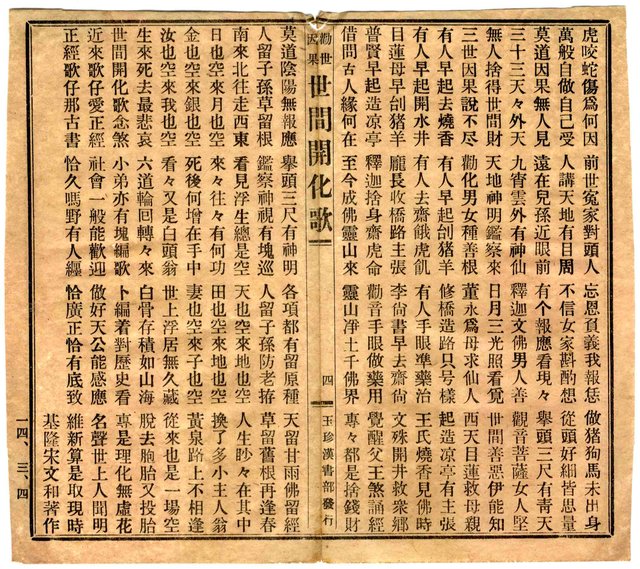 虎咬蛇傷爲何因 前世冤家對頭人 忘恩負義我報恁 做猪狗馬未出身
萬般自做自己受 人講天地有目周 不信女家斟酌想 從頭好細皆思量
莫道因果無人見 遠在兒孫近眼前 有个報應看現々 舉頭三尺有靑天
三十三天々外天 九宵雲外有神仙 釋迦文佛男人善 觀音菩薩女人堅
無人捨得世間財 天地神明鑑察來 日月三光照看覓 世間善惡伊能知
三世因果說不尽 勸化男女種善根 董永爲母求仙人 西天目蓮救母親
有人早起去燒香 有人早起刣猪羊 修橋造路只号樣 起造凉亭有主張
有人早起開水井 有人去齋餓虎飢 有人手眼準藥治 王氏燒香見佛時
目蓮母早刣猪羊 龐長收橋路主張 李尙書早去齋尙 文殊開井救衆鄉
普賢早起造凉亭 釋迦捨身齋虎命 勸音手眼做藥用 覺醒父王煞誦經
借問古人緣何在 至今成佛靈山來 靈山淨土千佛界 專々都是捨錢財
勸世因果 世間開化歌 四 玉珍漢書部發行
莫道陰陽無報應 舉頭三尺有神明 各項都有留原種 天留甘雨佛留經
人留子孫草留根 鑑察神視有塊巡 人留子孫防老拵 草留舊根再逢春
南來北往走西東 看見浮生總是空 天也空來地也空 人生眇々在其中
日也空來月也空 來々往々有何功 田也空來地也空 換了多小主人翁
金也空來銀也空 死後何增在手中 妻也空來子也空 黃泉路上不相逢
汝也空來我也空 看々又是白頭翁 世上浮居無久藏 從來也是一場空
生來死去最悲哀 六道輪回轉々來 白骨存積如山海 脫去胞胎又投胎
世間開化歌念煞 小弟亦有塊編歌 卜編着對歷史看 專是理化無虛花
近來歌仔愛正經 社會一般能歡迎 做好天公能感應 名聲世上人聞明
正經歌仔那古書 恰久嗎野有人纏 恰廣正恰有底致 維新算是取現時
基隆宋文和著作
一四、三、四